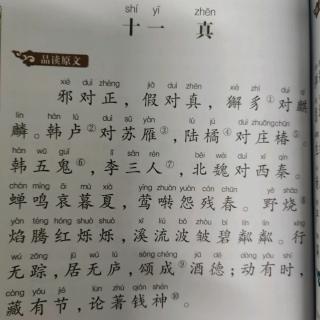 shí yī zhēn
十一 真
品读原文
xié duì zhèng jiǎ duì zhēn xiè zhì duì qí
邪对正，假对真，獬豸①对麒
lín hán lú duì sū yàn lù jú duì zhuāng chūn
麟。韩卢②对苏雁③，陆橘④对庄椿⑤。
hán wǔ guǐ lǐ sān rén běi wèi duì xī qín
韩五鬼⑥，李三人⑦，北魏对西秦。
chán míng āi mù xià yīng zhuàn yuàn cán chūn yě shāo
蝉鸣哀暮夏，莺啭怨残春。野烧⑧
yàn téng hóng shuò shuò xī liú bō zhòu bì lín lín xíng
焰腾红烁烁，溪流波皱碧粼粼。行
wú zōng jū wú lú sòng chéng jiǔ dé dòng yǒu shí
无踪，居无庐，颂成⑨酒德；动有时，
cáng yǒu jié lùn zhù qián shén
藏有节，论著钱神⑩。